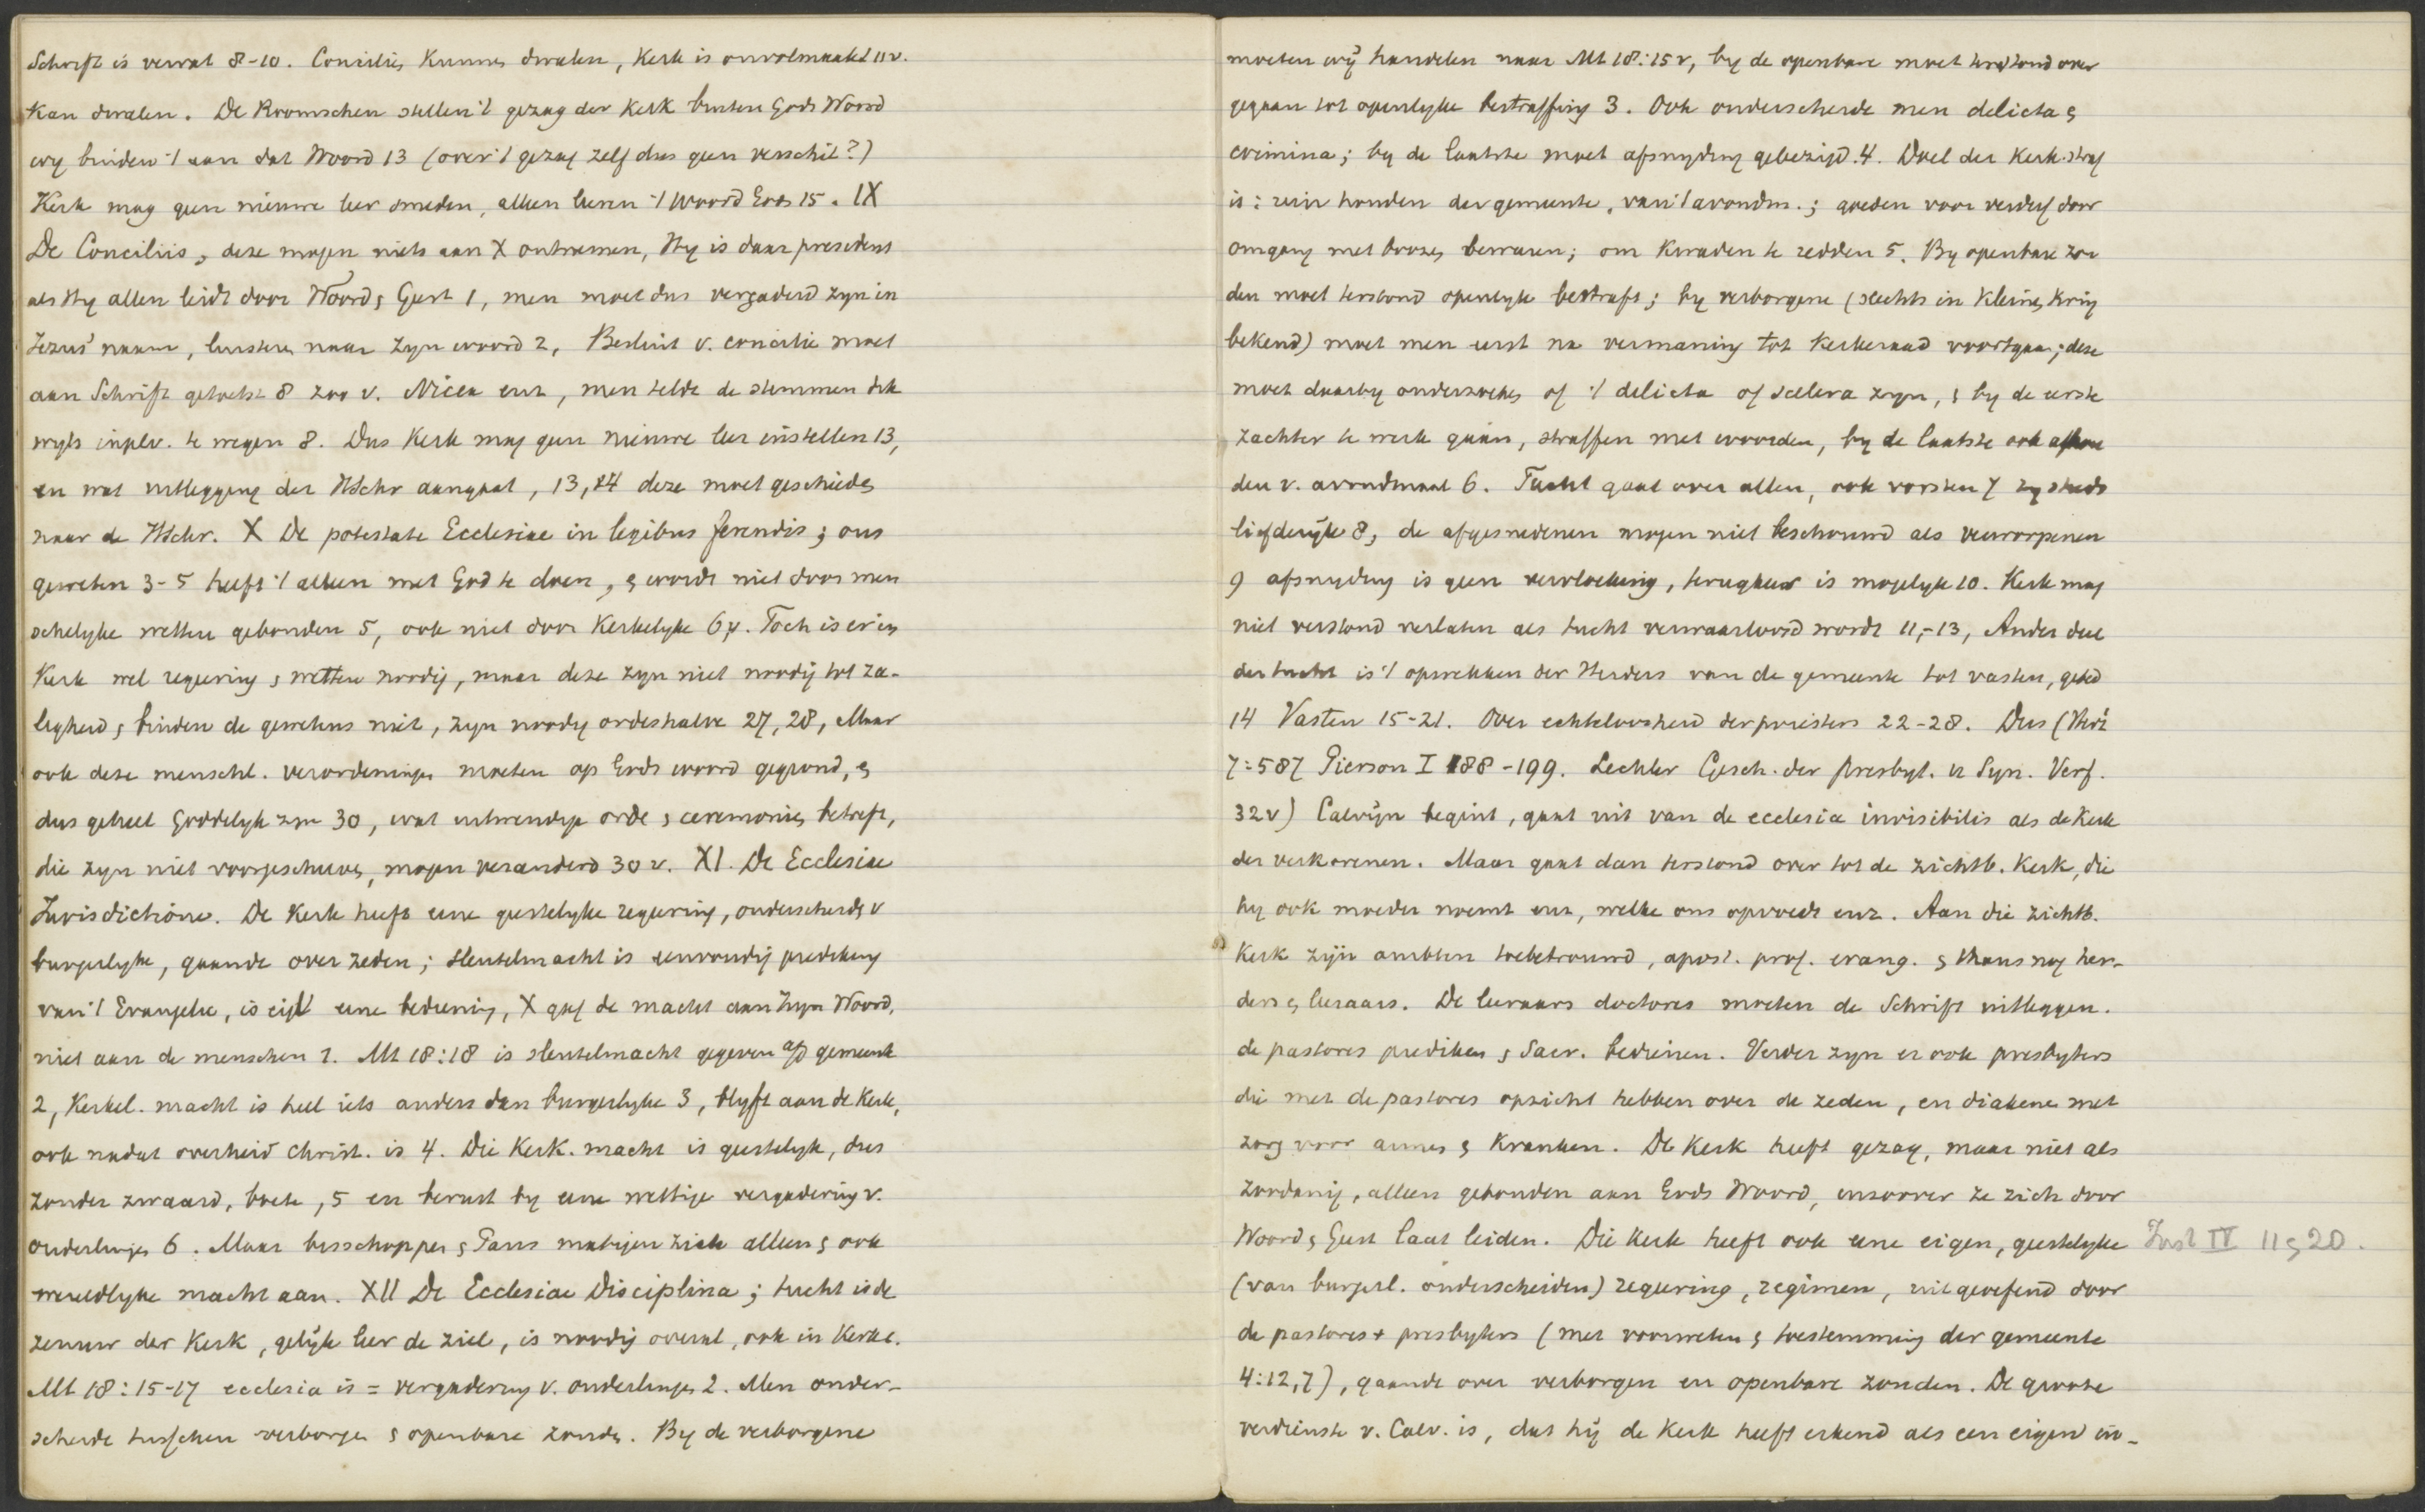 Schrift is vervat 8-10. Conciliën kunnen dwalen, Kerk is onvolmaakt 11 v.
Kan dwalen. De Roomschen stellen 't gezag der Kerk buiten Gods Woord
wy binden 't aan dat Woord 13 (over 't gezag zelf dus geen verschil?)
Kerk mag geen nieuwe leer smeden, alleen leeren 't Woord Gods 15. IX
De Conciliis, deze mogen niets aan X ontnemen, Hy is daar president
als Hy allen leidt door Woord & Geest 1, men moet dus vergaderd zyn in
Jezus' naam, luisteren naar Zyn woord 2, Besluit v. concilie moet
aan Schrift getoetst 8 zoo v. Nicea enz, men telde de stemmen dik
wyls inplv. te wegen 8. Dus Kerk mag geen nieuwe leer instellen 13,
en wat uitlegging der HSchr aangaat, 13, 14 deze moet geschieden
naar de HSchr. X De potestate Ecclesiae in legibus ferendis; ons
geweten 3-5 heeft 't alleen met God te doen, & wordt niet door men
schelyke wetten gebonden 5, ook niet door Kerkelyke 6 v. Toch is er in
Kerk wel regeering & wetten noodig, maar deze zyn niet noodig tot za-
ligheid & binden de gewetens niet, zyn noodig ordeshalve 27, 28, Maar
ook deze menschl. verordeningen moeten op Gods woord gegrond, &
dus geheel Goddelyk zyn 30, wat uitwendige orde & ceremoniën betreft,
die zyn niet voorgeschreven, mogen veranderd 30 v. XI. De Ecclesiae
Jurisdictione. De Kerk heeft eene geestelyke regeering, onderscheidn v
burgerlyke, gaande over zeden; sleutelmacht is eenvoudig prediking
van 't Evangelie, is eigl eene bediening, X gaf de macht aan Zyn Woord,
niet aan de menschen 1. Mt 18:18 is sleutelmacht gegeven a/d gemeente
2, Kerkel. macht is heel iets anders dan burgerlyke 3, blyft aan de Kerk,
ook nadat overheid christ. is 4. Die Kerk. macht is geestelyk, dus
zonder zwaard, boete, 5 en berust by eene wettige vergadering v.
ouderlingen 6. Maar bisschoppen & Paus matigen zich alleen & ook
wereldlyke macht aan. XII De Ecclesiae Disciplina; tucht is de
zenuw der Kerk, gelijk leer de ziel, is noodig overal, ook in Kerk.
Mt 18:15-17 ecclesia is = vergadering v. ouderlingen 2. Men onder-
scheide tusschen verborgen & openbare zonden. By de verborgene
moeten wij handelen naar Mt 18:15 v, by de openbare moet terstond over
gegaan tot openlyke bestraffing 3. Ook onderscheide men delicta &
crimina; by de laatste moet afsnyding gebezigd. 4. Doel der Kerk. straf
is: rein houden der gemeente, van 't avondm.; goeden voor verderf door
omgang met boozen bewaren; om kwaden te redden 5. By openbare zon
den moet terstond openlyk bestraft; by verborgene (slechts in kleinen kring
bekend) moet men eerst na vermaning tot Kerkeraad voortgaan; deze
moet daarby onderzoeken of 't delicta of scelera zyn, & by de eerste
zachter te werk gaan, straffen met woorden, by de laatste ook afhou
den v. avondmaal 6. Tucht gaat over allen, ook vorsten 7 zy steeds
liefderijk 8, de afgesnedenen mogen niet beschouwd als verworpenen
9 afsnyding is geen vervloeking, terugkeer is mogelyk 10. Kerk mag
niet verstond verlaten als tucht verwaarloosd wordt 11,-13, Ander deel
der tucht is 't opwekken der Herders van de gemeente tot vasten, gebed
14 Vasten 15-21. Over echteloosheid der priesters 22-28. Dus (
7:587 Pierson I 188-199. Lechler Gesch. der Presbyt. u Syn. Verf.
32 v) Calvijn begint, gaat uit van de ecclesia invisibilis als de Kerk
der verkorenen. Maar gaat dan terstond over tot de zichtb. Kerk, die
hy ook moeder noemt enz, welke ons opvoedt enz. Aan die zichtb.
Kerk zijn ambten toebetrouwd, apost. prof. evang. & thans nog her-
ders & leraars. De leeraars doctores moeten de Schrift uitleggen.
de pastores prediken & Sacr. bedienen. Verder zyn er ook presbyters
die met de pastores opzicht hebben over de zeden, en diakenen met
zorg voor armen & Kranken. De Kerk heeft gezag, maar niet als
zoodanig, alleen gebonden aan Gods Woord, inzoover ze zich door
Woord & Geest laat leiden. Die Kerk heeft ook eene eigen, geestelyke Inst IV 11 & 20.
(van burgerl. onderscheiden) regeering, regimen, uitgeoefend door
de pastores + presbyters (met voorweten & toestemming der gemeente
4:12,7), gaande over verborgen en openbare zonden. De groote
verdienste v. Calv. is, dat hij de Kerk heeft erkend als een eigen in-